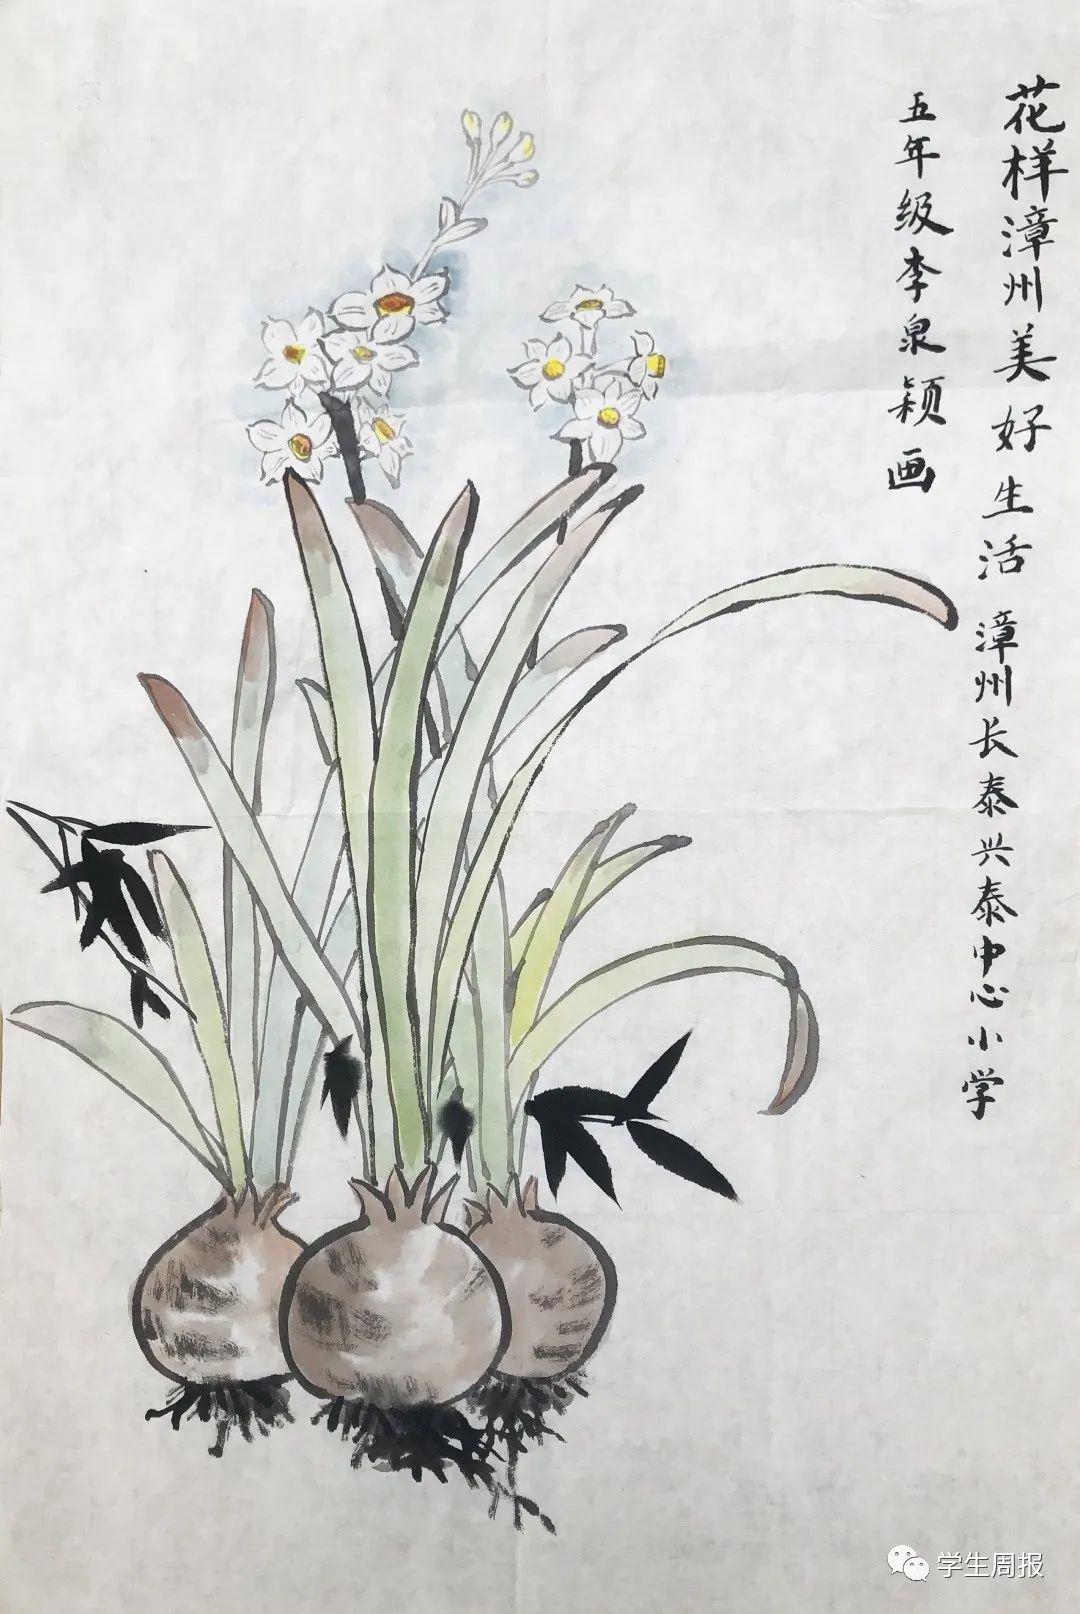 花样漳州美好生活 漳州长泰兴泰中心小学
五年级李泉颖画
学生周报